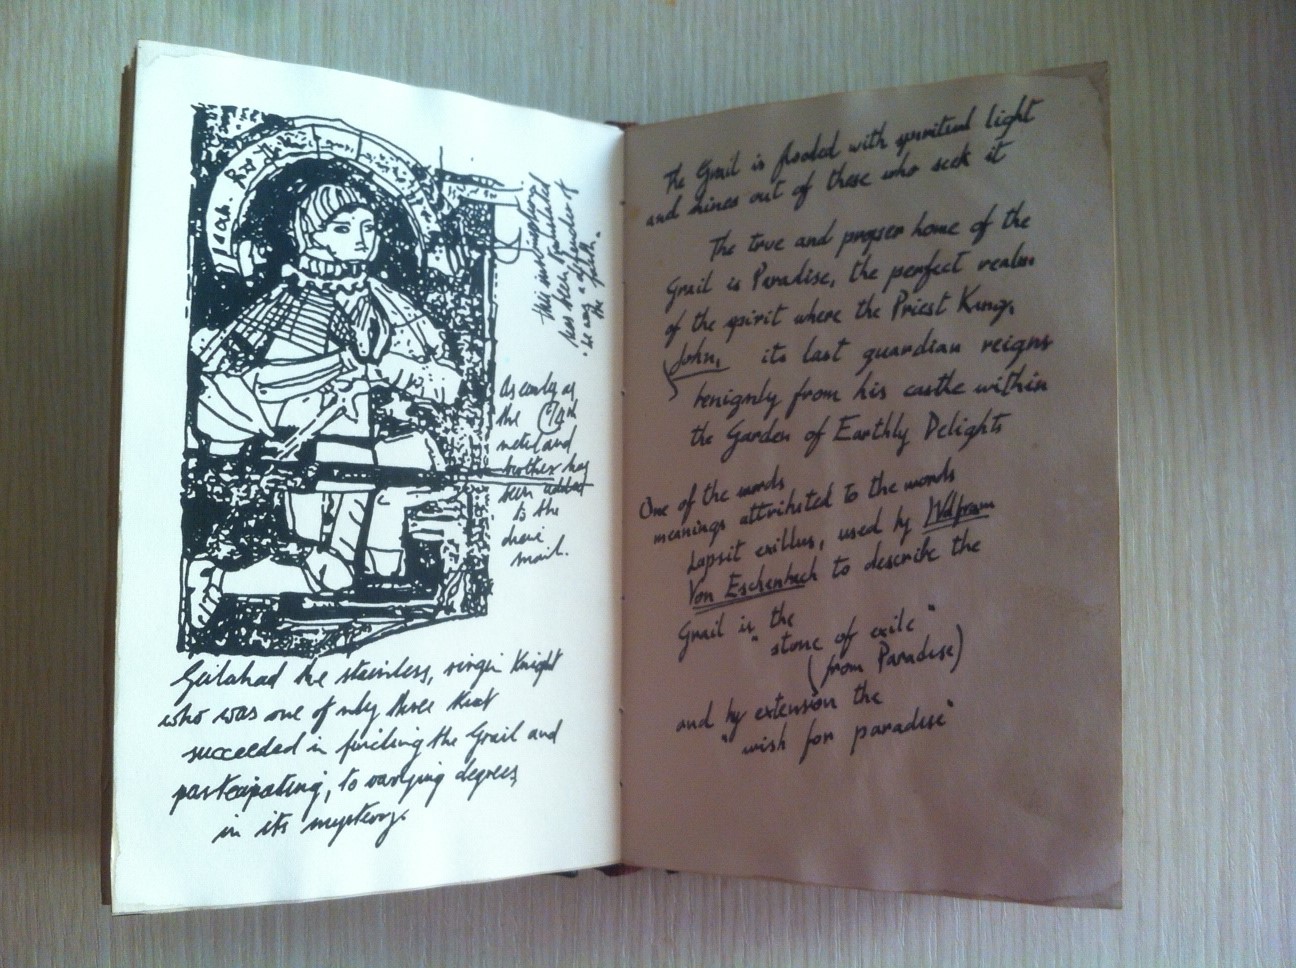 this
has been
he was a defender of
the faith.
As early as
the
metal and
brother has
been added
to the
chain
mail.
Galahad the stainless, virgin Knight
who was one of only three that
succeeded in finding the Grail and
partcipating, to varying degrees,
in its mystery.
The Grail is flooded with spiritual light
and shines out of these who seek it
The true and proper home of the
Grail is Paradise, the perfect realm
of the spirit where the Priest King,
John, its last guardian reigns
benignly from his castle within
the Garden of Earthly Delights
One of the words
meanings attributed to the words
Lapsit exillus, used by Wolfram
Von Eschenbach to describe the
Grail is the
"stone of exile"
(from Paradise)
and by extension the
"wish for paradise"